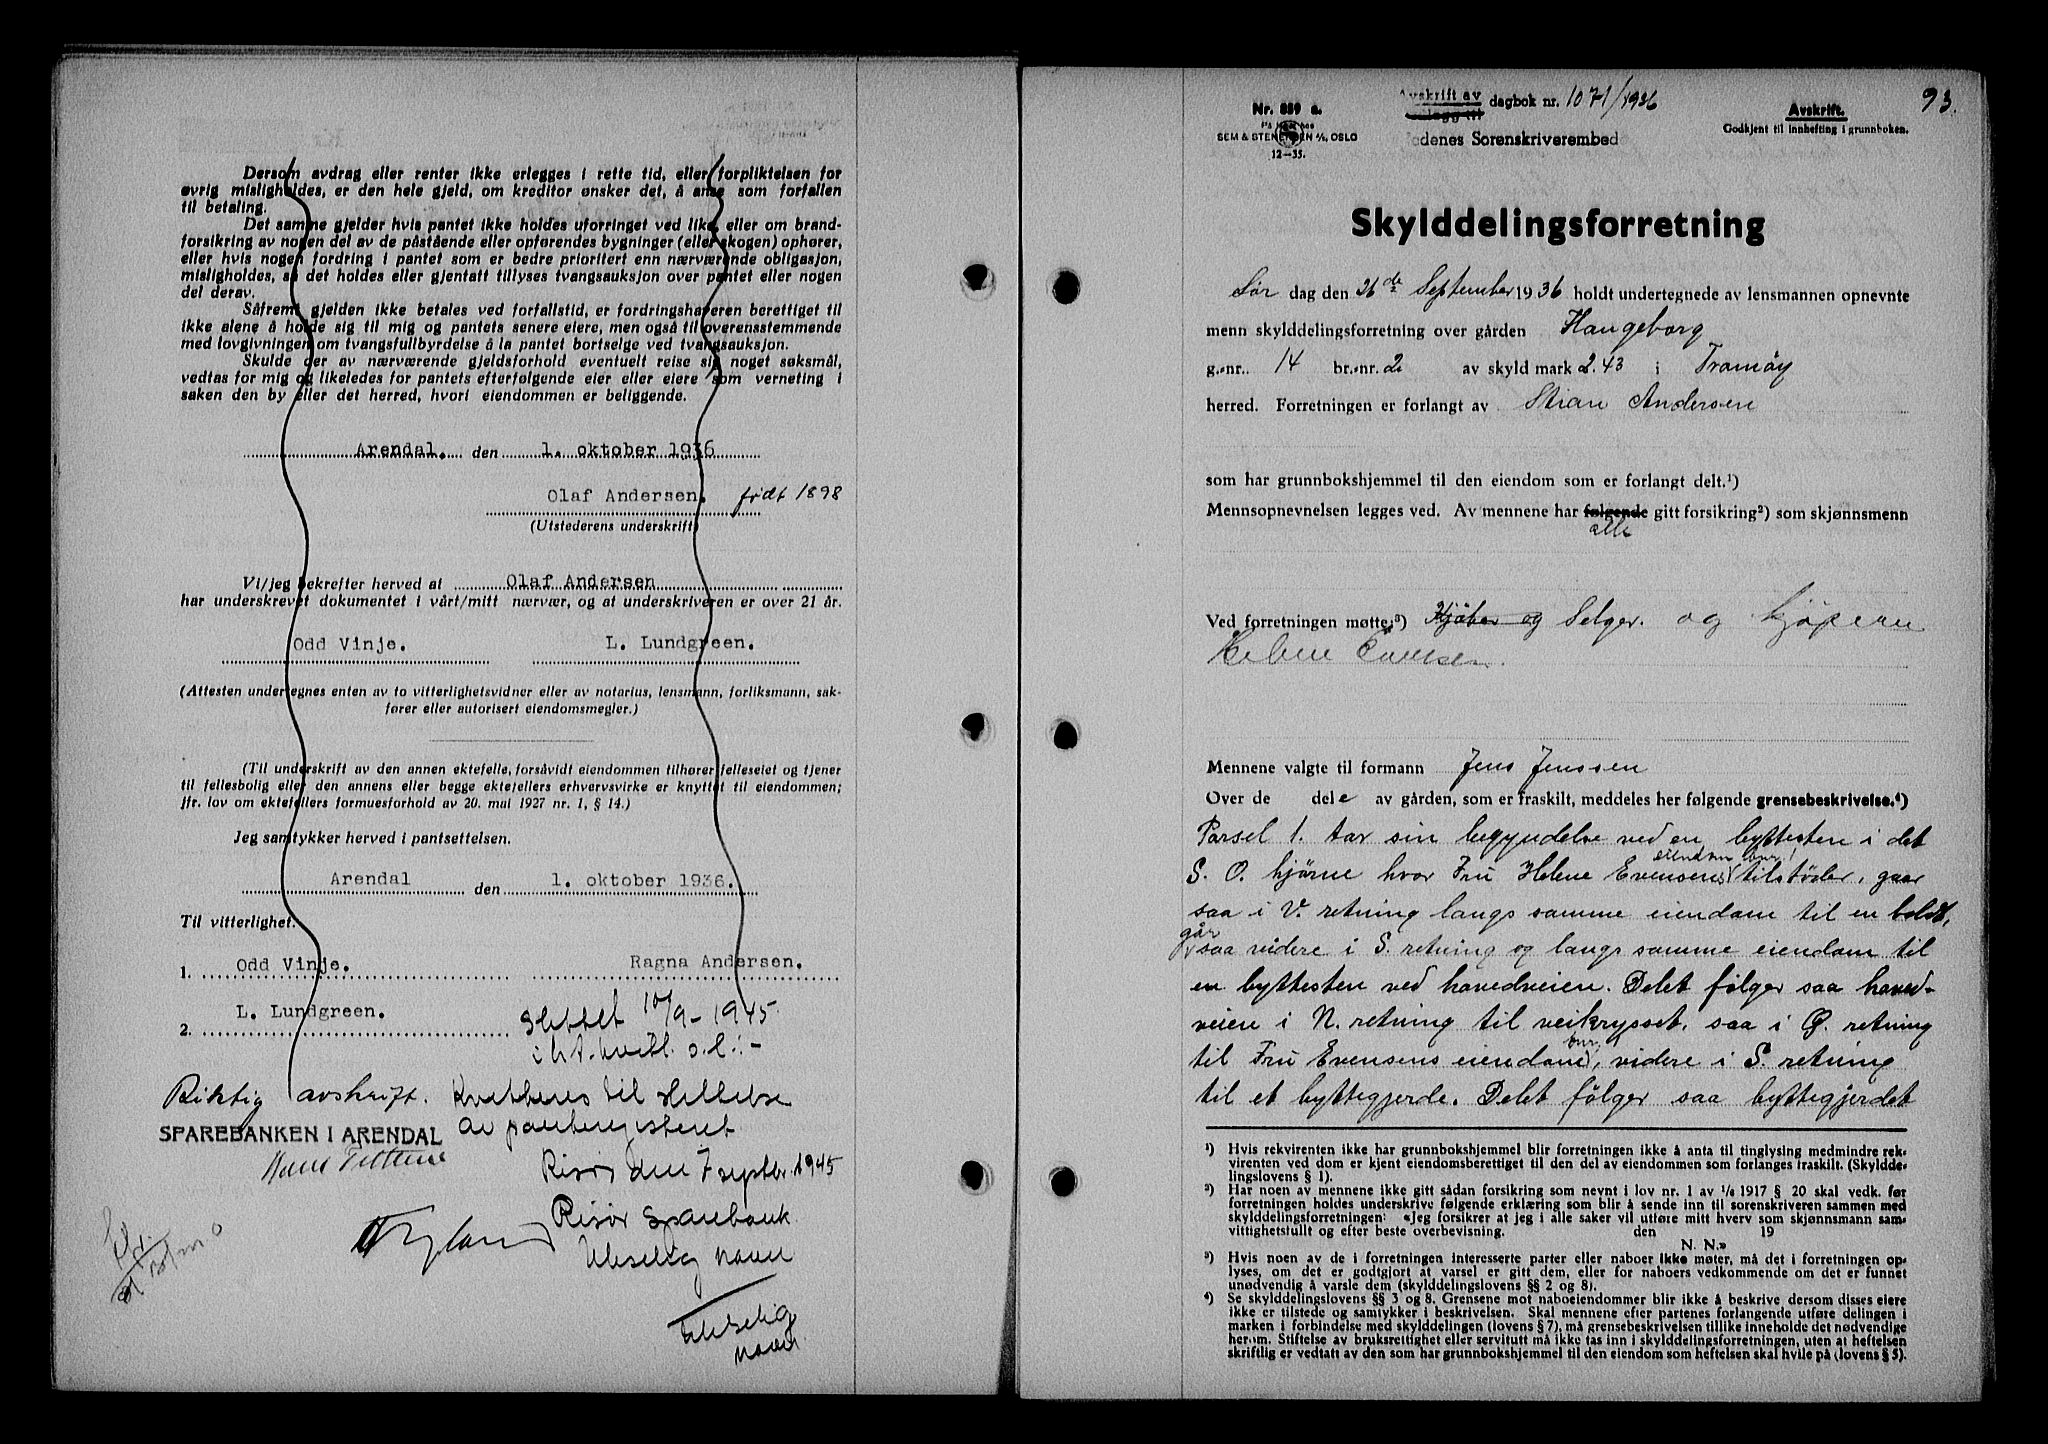 Dersom avdrag eller renter ikke erlegges i rette tid, eller forpliktelsen for
øvrig misligholdes, er den hele gjeld, om kreditor ønsker det, å anse som forfallen
til betaling.
Det samme gjelder hvis pantet ikke holdes uforringet ved like, eller om brand-
forsikring av nogen del av de påstående eller opførendes bygninger (eller skogen) ophører,
eller hvis nogen fordring i pantet som er bedre prioritert enn nærværende obligasjon,
misligholdes, så det holdes eller gjentatt tillyses tvangsauksjon over pantet eller nogen
del derav.
Såfremt gjelden ikke betales ved forfallstid, er fordringshaveren berettiget til
ikke alene å holde sig til mig og pantets senere eiere, men også til overensstemmende
med lovgivningen om tvangsfullbyrdelse å la pantet bortselge ved tvangsauksjon.
Skulde der av nærværende gjeldsforhold eventuelt reise sig noget søksmål,
vedtas for mig og likeledes for pantets efterfølgende eier eller eiere som verneting i
saken den by eller det herred, hvori eiendommen er beliggende.
Arendal. den 1. oktober 1936
Olaf Andersen. født 1898
(Utstederens underskrift)
Vi/jeg bekrefter herved at Olaf Andersen
har underskrevet dokumentet i vårt/mitt nærvær, og at underskriveren er over 21 år.
Odd Vinje. L. Lundgreen.
(Attesten undertegnes enten av to vitterlighetsvidner eller av notarius, lensmann, forliksmann, sak-
fører eller autorisert eiendomsmegler.)
(Til underskrift av den annen ektefelle, forsåvidt eiendommen tilhører felleseiet og tjener
til fellesbolig eller den annens eller begge ektefellers erhvervsvirke er knyttet til eiendommen;
jfr. lov om ektefellers formuesforhold av 20. mai 1927 nr. 1, § 14.)
Jeg samtykker herved i pantsettelsen.
Arendal den 1. oktober 1936.
Til vitterlighet.
1. Odd Vinje. Ragna Andersen.
2. L. Lundgreen. Slettet 10/9-1945
i h.t. kvitt. o.l:-
Riktig avskrift. Kvitteres til slettelse
SPAREBANKEN I ARENDAL av pantregisteret
Risør den 7 septbr. 1945
Risør Sparebank
Uleselig navn
Uleselig
navn
Nr. 859 a.
SEM & STENERSEN A/S, OSLO
12-35.
Avskrift av
dagbok nr. 1071/1936
Nedenes Sorenskriverembede
Avskrift.
Godkjent til innhefting i grunnboken.
93.
Skylddelingsforretning
Lør dag den 26de September 1936 holdt undertegnede av lensmannen opnevnte
menn skylddelingsforretning over gården Haugeborg
g.nr. 14 br.nr. 2 av skyld mark 2.43 i Tromøy
herred. Forretningen er forlangt av Stian Andersen
som har grunnbokshjemmel til den eiendom som er forlangt delt.¹)
Mennsopnevnelsen legges ved. Av mennene har følgende gitt forsikring²) som skjønnsmenn
alle
Ved forretningen møtte:³) Kjøber og Selger. og kjøperen
Helene Evensen.
Mennene valgte til formann Jens Jenssen
Over de dele av gården, som er fraskilt, meddeles her følgende grensebeskrivelse.⁴)
Parsel 1. tar sin begyndelse ved en byttesten i det
eiendom
S. O. hjørne hvor Fru Helene Evensens tilstøder, gaar
saa i V. retning langs samme eiendom til en bolt,
går
saa videre i S. retning og langs samme eiendom til
en byttesten ved hovedveien. Delet følger saa hoved-
veien i N. retning til veikrysset, saa i Ø. retning
til Fru Evensens eiendom, videre i S. retning
til et byttegjerde. Delet følger saa byttegjerdet
¹) Hvis rekvirenten ikke har grunnbokshjemmel blir forretningen ikke å anta til tinglysing medmindre rek-
virenten ved dom er kjent eiendomsberettiget til den del av eiendommen som forlanges fraskilt. (Skyldde-
lingslovens § 1).
²) Har noen av mennene ikke gitt sådan forsikring som nevnt i lov nr. 1 av 1/6 1917 § 20 skal vedk. før
forretningen holdes underskrive følgende erklæring som blir å sende inn til sorenskriveren sammen med
skylddelingsforretningen: «Jeg forsikrer at jeg i alle saker vil utføre mitt hverv som skjønnsmann sam-
vittighetsfullt og efter beste overbevisning. den 19
N. N.»
³) Hvis noen av de i forretningen interesserte parter eller naboer ikke møter, må det i forretningen op-
lyses, om det er godtgjort at varsel er gitt dem, eller for naboers vedkommende om det er funnet
unødvendig å varsle dem (skylddelingslovens §§ 2 og 8).
⁴) Se skylddelingslovens §§ 3 og 8. Grensene mot naboeiendommer blir ikke å beskrive dersom disses eiere
ikke er tilstede og samtykker i beskrivelsen. Skal mennene efter partenes forlangende utføre delingen i
marken i forbindelse med skylddelingen (lovens § 7), må grensebeskrivelsen tillike inneholde det nødvendige
herom. Stiftelse av bruksrettighet eller servitutt må ikke tas inn i skylddelingsforretningen, uten at heftelsen
skriftlig er vedtatt av den som har grunnbokshjemmel til den eiendom som heftelsen skal hvile på (lovens § 5).